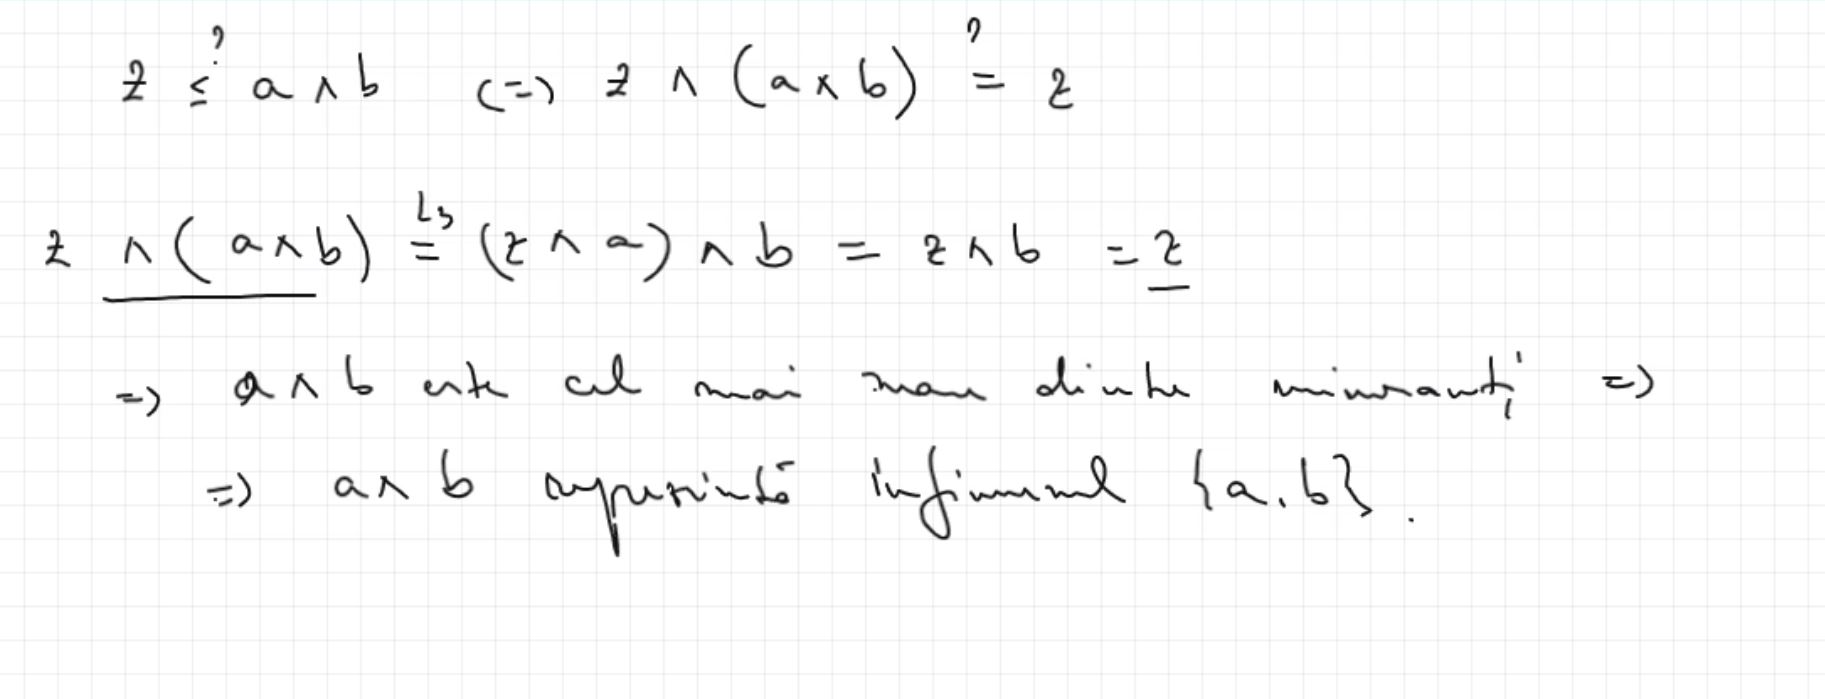 z ≤? a ∧ b (=) z ∧ (a ∧ b) =? z
z ∧ (a ∧ b) =L3 (z ∧ a) ∧ b = z ∧ b = z
=) a ∧ b este cel mai mare dintre minoranți =)
=) a ∧ b reprezintă infimumul {a, b}.